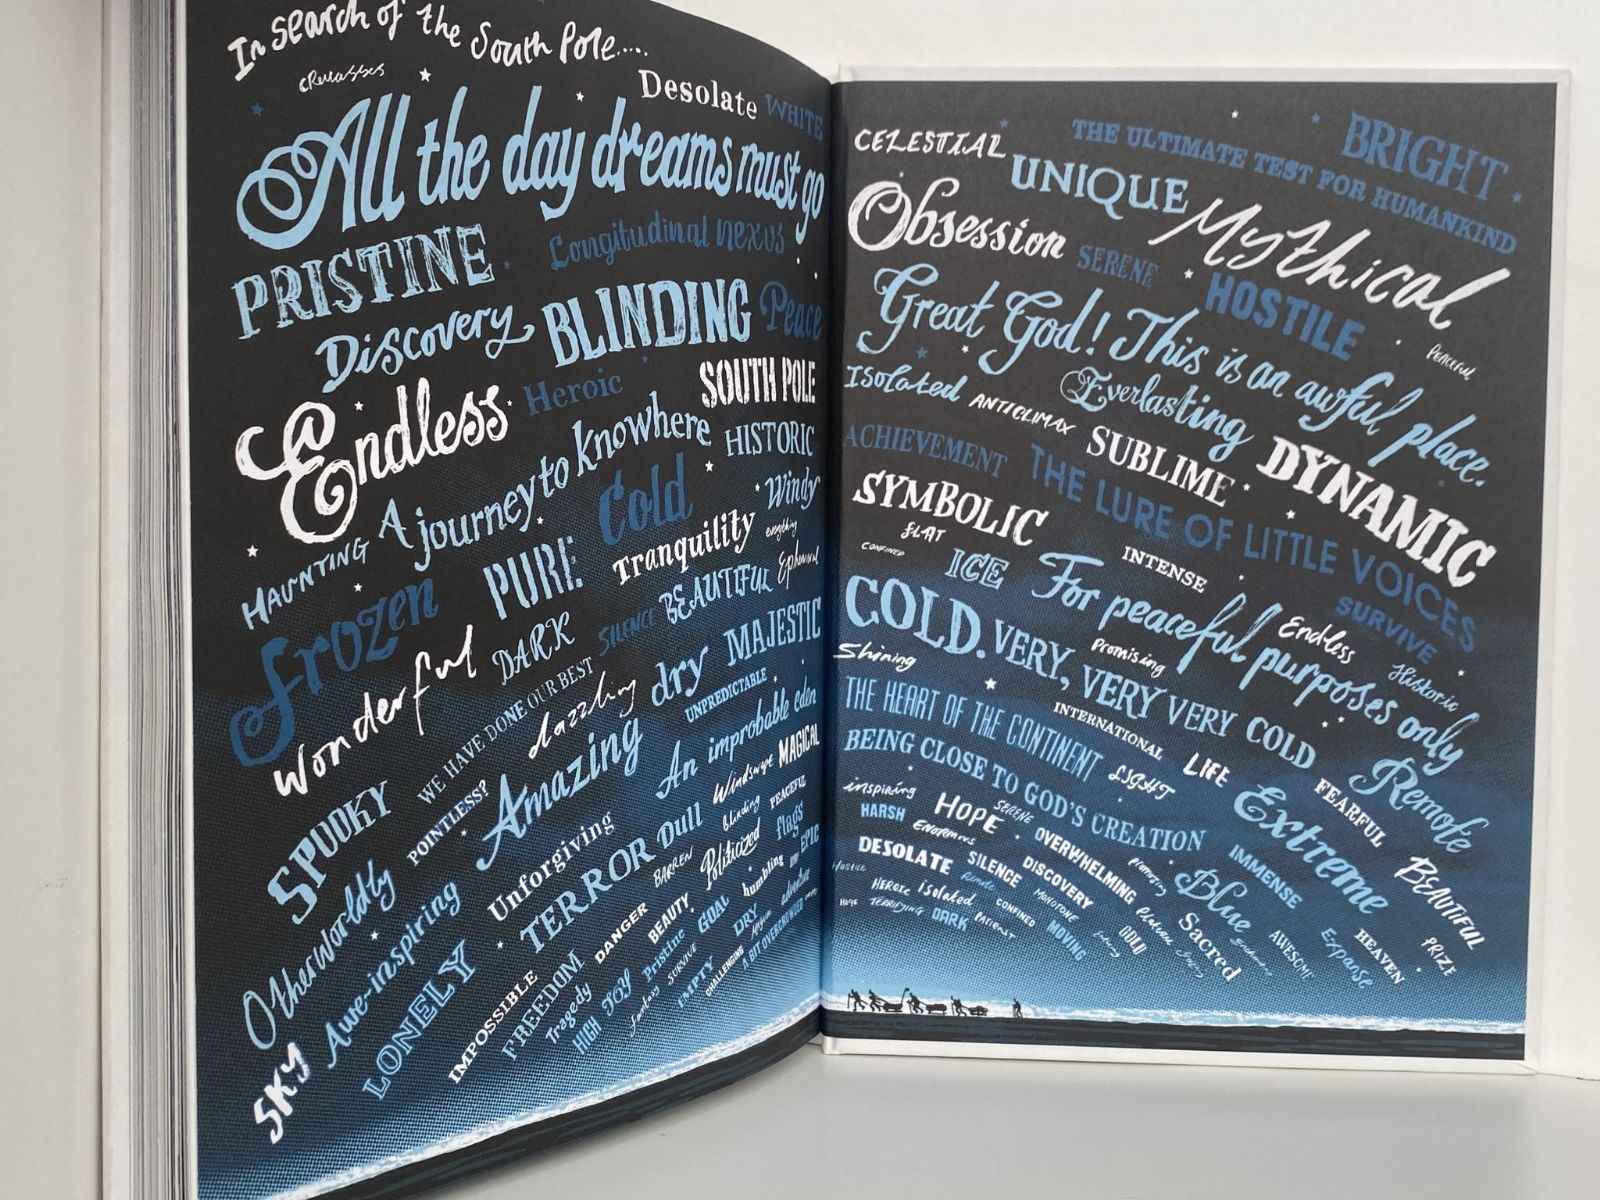 In search of the South Pole.....
crevasses
Desolate WHITE
All the day dreams must go
PRISTINE
Longitudinal nexus
Discovery
BLINDING
Peace
Endless
Heroic
SOUTH POLE
A journey to knowhere
HISTORIC
HAUNTING
Cold
Windy
Frozen
PURE
Tranquility
everything
Ephemeral
Wonderful
DARK
SILENCE
BEAUTIFUL
WE HAVE DONE OUR BEST
dazzling
dry
MAJESTIC
UNPREDICTABLE
SPOOKY
POINTLESS?
Amazing
An improbable eden
Otherworldly
Unforgiving
Windswept
MAGICAL
Awe-inspiring
TERROR
Dull
Blinding
PEACEFUL
BARREN
Politicized
flags
EPIC
LONELY
DANGER
BEAUTY
GOAL
humbling
SKY
IMPOSSIBLE
FREEDOM
Tragedy
HIGH
JOY
Pristine
SURVIVE
DRY
adventure
Fantasy
EMPTY
CHALLENGING
A BIT OVERCROWDED
CELESTIAL
THE ULTIMATE TEST FOR HUMANKIND
BRIGHT
UNIQUE
Mythical
Obsession
SERENE
HOSTILE
PEACEFUL
Great God! This is an awful place.
Isolated
ANTICLIMAX
Everlasting
ACHIEVEMENT
SUBLIME
DYNAMIC
SYMBOLIC
THE LURE OF LITTLE VOICES
FLAT
CONFINED
ICE
INTENSE
SURVIVE
For peaceful purposes only
Endless
Historic
COLD. VERY, VERY VERY COLD
Promising
Shining
THE HEART OF THE CONTINENT
INTERNATIONAL
LIFE
Remote
BEING CLOSE TO GOD'S CREATION
LIGHT
Extreme
FEARFUL
inspiring
HARSH
HOPE
SERENE
ENORMOUS
OVERWHELMING
IMMENSE
BEAUTIFUL
DESOLATE
SILENCE
DISCOVERY
Promising
Blue
Hostile
Heroic
Isolated
Remote
MONOTONE
Plateau
Sacred
AWESOME
HEAVEN
PRIZE
HOPE
TERRIFYING
DARK
PATIENT
CONFINED
MOVING
GOLD
Expanse